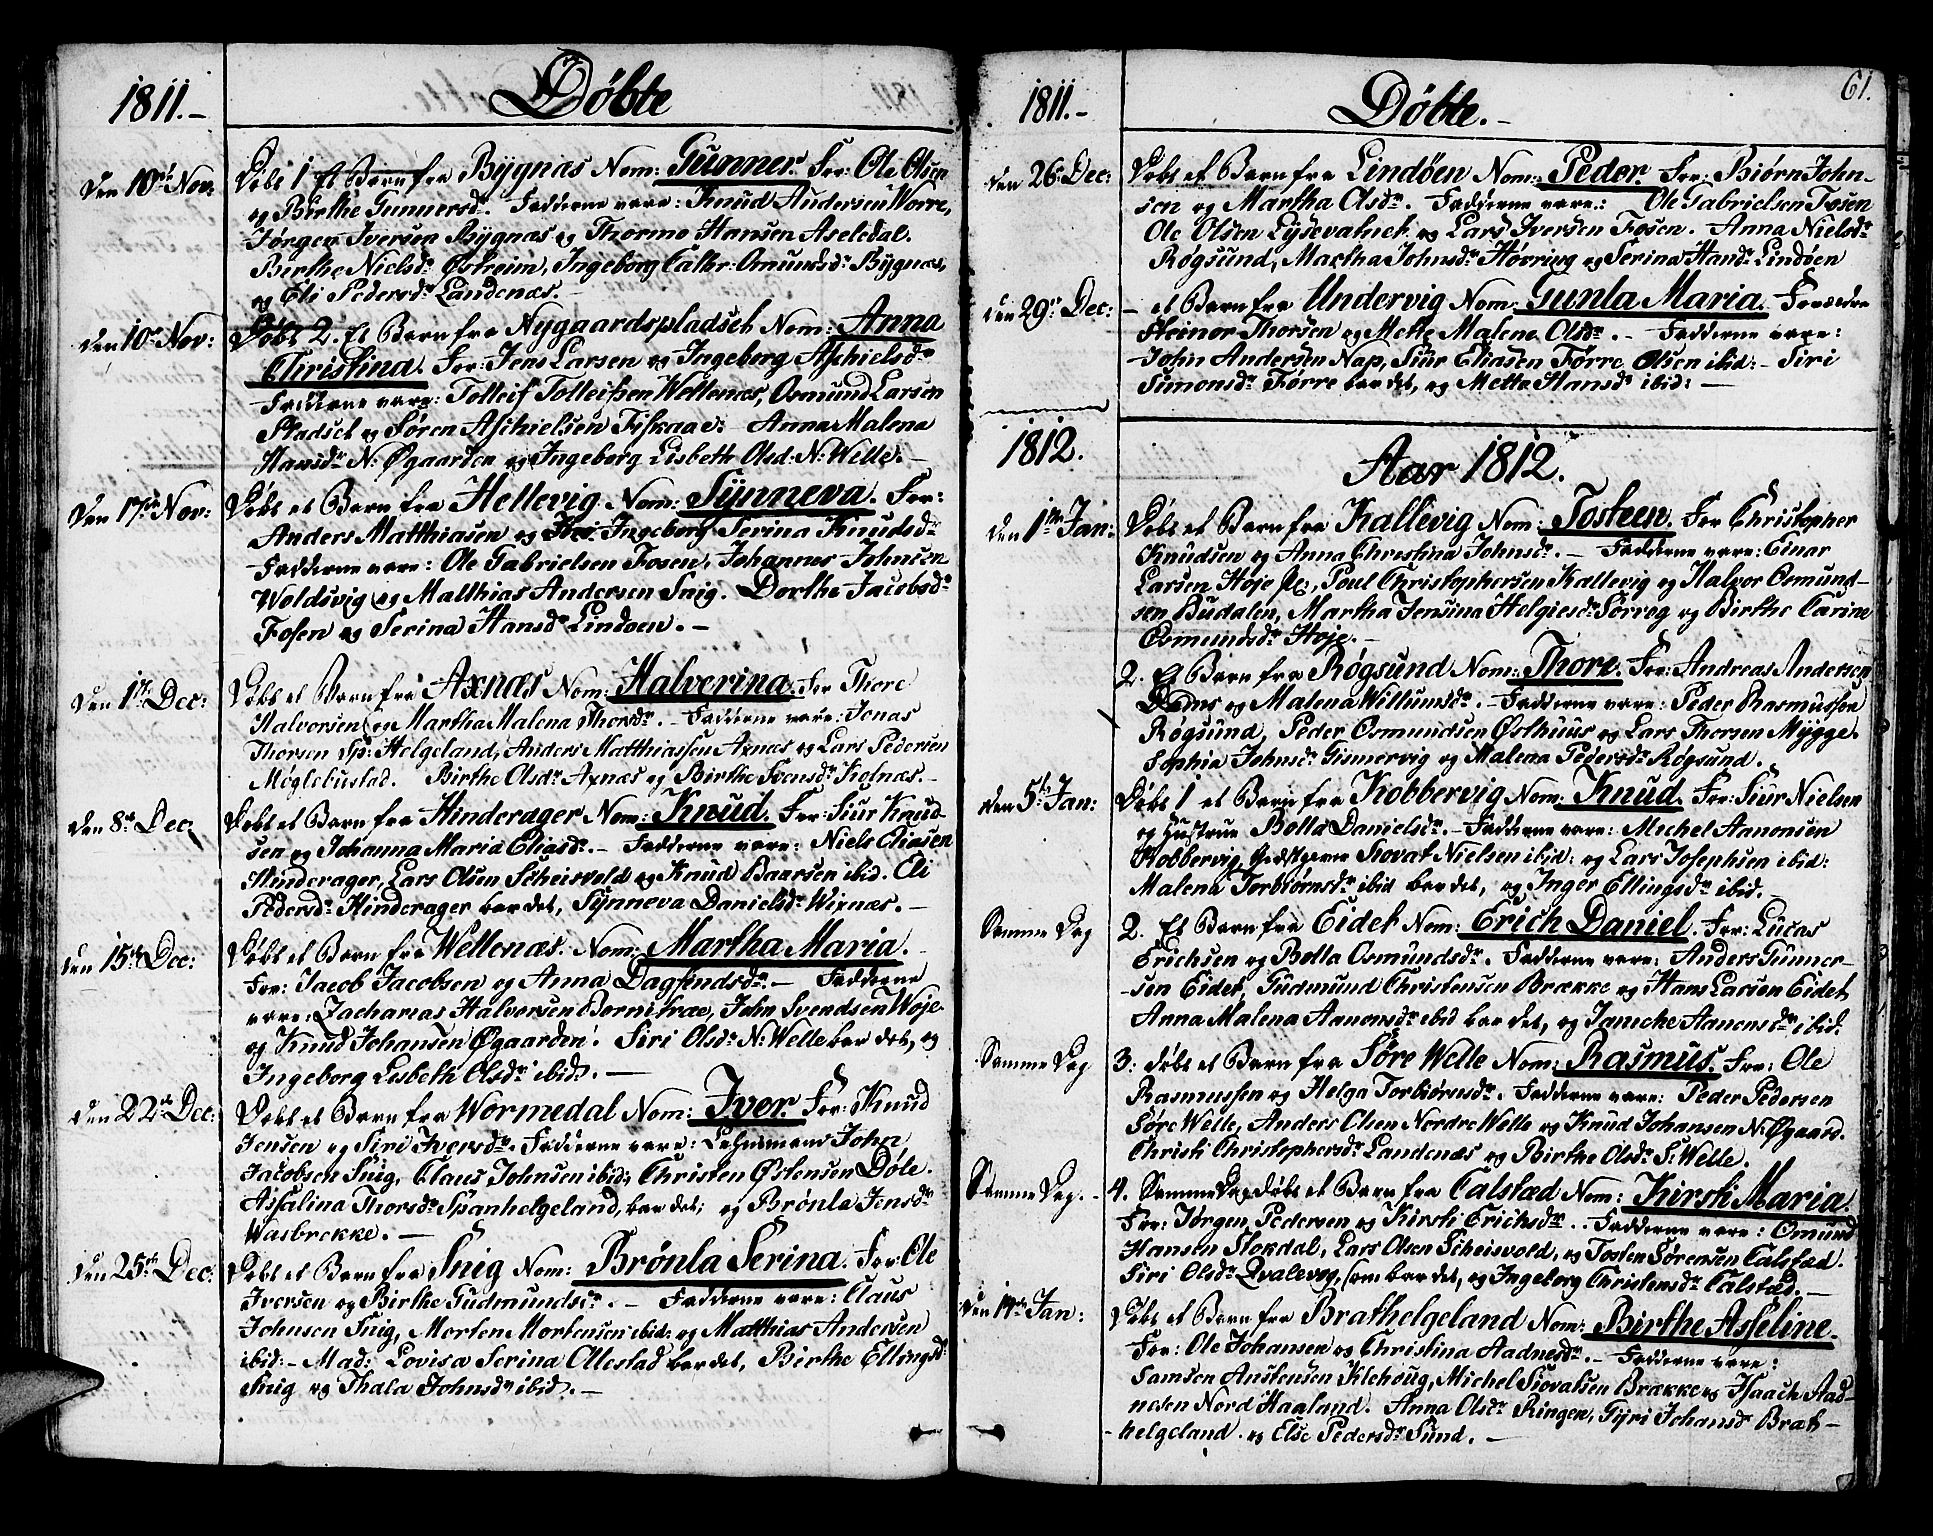 1811.-
Döbte
Den 10de Nov:
Döbt 1 Et Barn fra Bygnæs Nom: Gunner. For: Ole Olsen
og Birthe Gunnersdr. Fadderne vare: Knud Andersen Worre,
Jörgen Iversen Bygnæs og Thormo Hansen Aseledal.
Berthe Nielsdr Østreim, Ingeborg Cathr: Omundsdr Bygnæs,
og Eli Pedersdr Landenæs.-
Den 10de Nov:
Döbt 2. Et Barn fra Nygaardspladset Nom: Anna
Christina. For: Jens Larsen og Ingeborg Aschielsdr
Fadderne vare: Tolleif Tolleifsen Wellenæs, Osmund Larsen
Pladset og Søren Aschielsen Fiskaae:- Anna Malena
Hansdr N: Øgaarden og Ingeborg Lisbeth Olsd: N: Welle.-
Den 17de Nov:
Döbt et Barn fra Hellevig Nom: Synneva. For:
Anders Matthiasen og Ingeborg Serina Knudsdr
Fadderne vare: Ole Gabrielsen Fosen, Johannes Johnsen
Woldsvig og Matthias Andersen Snig. Dorthe Jacobsdr
Fosen og Serina Hansdr Lindøen.-
Den 1ste Dec:
Döbt et Barn fra Axnæs Nom: Halverina. For Thore
Halvorsen og Martha Malena Thorsdr.- Fadderne vare: Jonas
Thorsen Sp: Helgeland, Anders Matthiassen Axnæs og Lars Pedersen
Møglebustad. Birthe Olsdr Axnæs og Birthe Svensdr Kolnæs.-
Den 8de Dec:
Döbt et Barn fra Hinderager Nom: Knud. For: Siur Knud-
sen og Johanna Maria Eliasdr.- Fadderne vare: Niels Eliasen
Hinderager, Lars Olsen Scheisvold og Knud Baarsen ibid. Eli
Pedersdr Hinderager bar det, Synneva Danielsdr Wixnæs.-
Den 15de Dec:
Döbt et Barn fra Wellenæs. Nom: Martha Maria.
For: Jacob Jacobsen og Anna Dagfindsdr.- Fadderne
vare: Zacharias Halvorsen Bornikræ, John Svendsen Woje
og Knud Johansen Øgaarden. Siri Olsdr N: Welle bar det, og
Ingeborg Lisbeth Olsdr ibid.-
Den 22de Dec:
Döbt et Barn fra Wormedal Nom: Iver. For: Knud
Jensen og Siri Iversdr. Fadderne vare: Lehnsmand John
Jacobsen Snig, Claus Johnsen ibid, Christen Østensen Døle.
Assalina Thorsdr Spanhelgeland, bar det; og Brønla Jensdr
Wasbrekke.-
Den 25de Dec:
Döbt et Barn fra Snig Nom: Brønla Serina. For Ole
Iversen og Birthe Gudmundsdr.- Fadderne vare: Claus
Johnsen Snig, Morten Mortensen ibid: og Matthias Andersen
ibid:- Mad: Lovisa Serina Olestad bar det, Birthe Ellingsd:
Snig og Thala Johnsdr ibid.-
61.
1811.-
Döbte.-
Den 26 Dec:
Döbt et Barn fra Lindøen Nom: Peder. For: Biørn John-
sen og Martha Olsdr. Fadderne vare: Ole Gabrielsen Fosen
Ole Olsen Lysevahet og Lars Iversen Fosen. Anna Nielsdr
Røgsund, Martha Johnsdr Høvring og Serina Hansdr Lindøen
Den 29de Dec:
- et Barn fra Undervig Nom: Gunla Maria. Forældre
Steinor Thorsen og Mette Malene Olsdr.- Fadderne vare:
John Andersen Nap, Siur Eliasen Førre, Olsen ibid:- Siri
Simonsdr Førre bar det, og Mette Hansdr ibid:-
1812.
Aar 1812.
Den 1ste Jan:
Döbt et Barn fra Kallevig Nom: Tosteen. For Christopher
Knudsen og Anna Christina Johnsdr.- Fadderne vare: Einar
Larsen Høje, Poul Christophersen Kallevig og Halvor Osmund-
sen Budalen, Martha Jensina Helgiesdr Sørreg og Birthe Carine
Osmundsdr Høje.-
2. Et Barn fra Røgsund Nom: Thore. For: Andreas Andersen
og Malena Willumsdr.- Fadderne vare: Peder Rasmussen
Røgsund, Peder Osmundsen Østhuus og Lars Thorsen Mygge.
Sophia Johnsdr Gismervig og Malena Pedersdr Røgsund.
Den 5te Jan:
Döbt 1 et Barn fra Kobbervig Nom: Knud. For: Siur Nielsen
og Hustrue Bolla Danielsdr.- Fadderne vare: Michel Aanonsen
Kobbervig, Giestgiver Siovat Nielsen ibid: og Lars Josephsen ibid:
Malena Torbiørnsdr ibid bar det, og Inger Ellingsdr ibid.-
Samme Dag
2. Et Barn fra Eidet Nom: Erich Daniel. For: Lucas
Erichsen og Bolla Osmundsdr. Fadderne vare: Anders Gunner-
sen Eidet, Gudmund Christensen Brække og Hans Larsen Eidet
Anna Malena Aanonsdr ibid bar det, og Janicke Aanensdr ibid.
Samme Dag
3: Döbt et Barn fra Søre Welle Nom: Rasmus. For: Ole
Rasmussen og Helga Torbiørnsdr. Fadderne vare: Peder Pedersen
Søre Welle, Anders Olsen Nordre Welle og Knud Johansen N: Øgaard.
Christi Christophersdr Landenæs og Birthe Olsdr S: Welle.
Samme Dag.-
4. Samme Dag döbt et Barn fra Calstad Nom: Kirsti Maria.
For: Jørgen Pedersen og Kirsti Erichsdr. Fadderne vare: Omund
Hansen Stokdal, Lars Olsen Scheisvold, og Tosten Sørensen Calstad.
Siri Olsdr Qvalevog, som bar det, og Ingeborg Christensdr Calstad.-
Den 19de Jan:
Döbt et Barn fra Brathelgeland Nom: Birthe Asseline.
For: Ole Johansen og Christina Aadnesdr.- Fadderne vare:
Samsen Austensen Klehoug, Michel Siovatsen Brække og Isaach Aad-
nesen Nord Haaland. Anna Olsdr Ringen, Gyri Johansdr Brat-
helgeland. og Else Pedersdr Sund.-